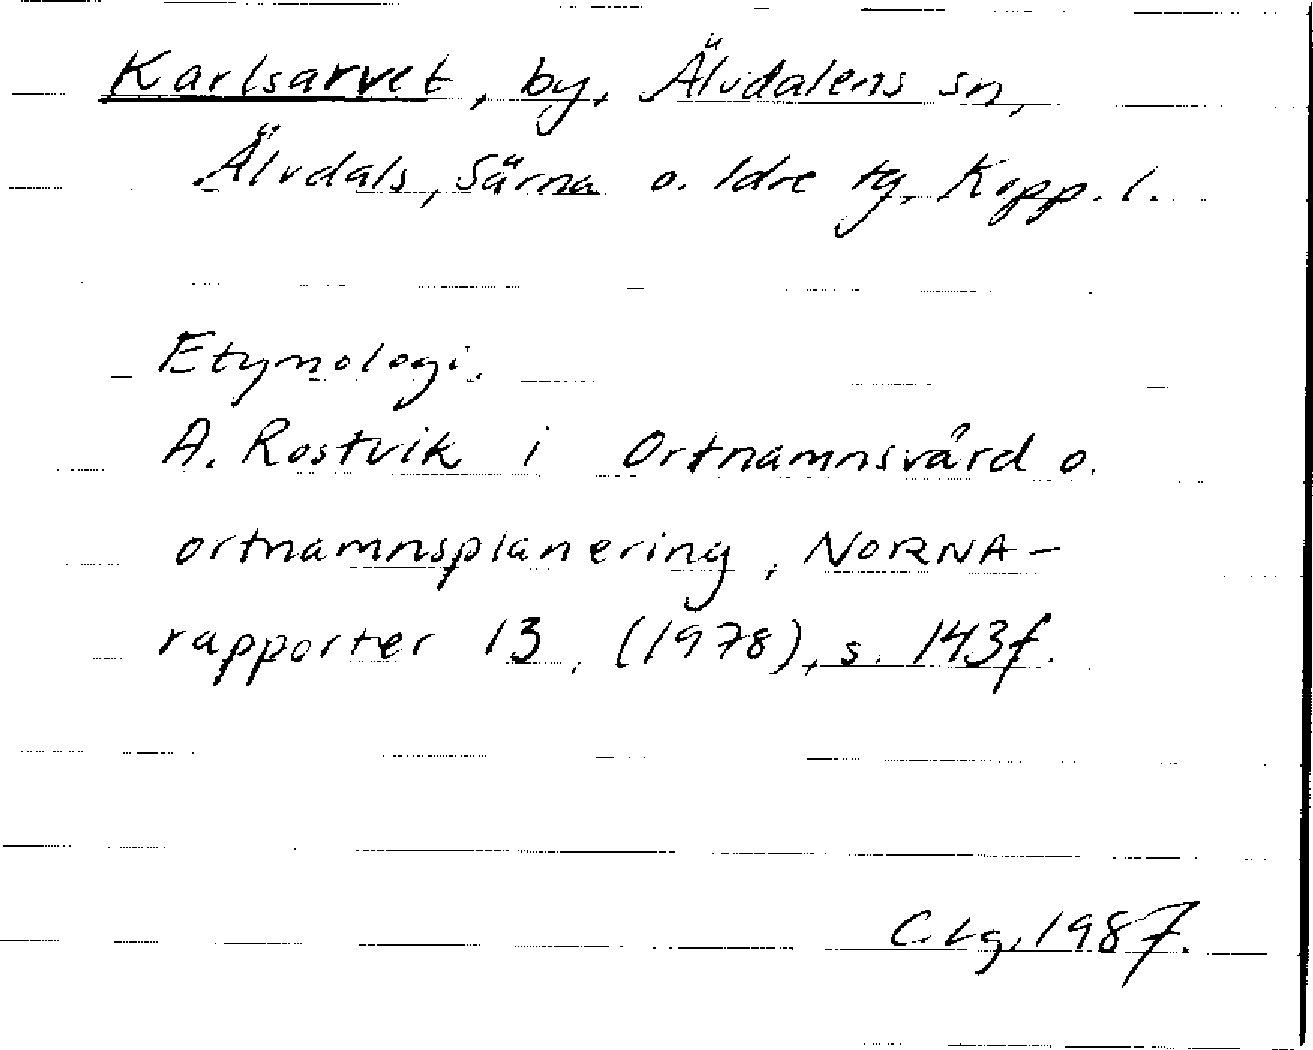 Karlsarvet, by, Älvdalens sn,
Älvdals, Särna o. Idre tg, Kopp. l.
Etymologi.
A. Rostvik i Ortnamnsvård o.
ortnamnsplanering, NORNA-
rapporter 13, (1978), s. 143f.
C. Lg, 1987.